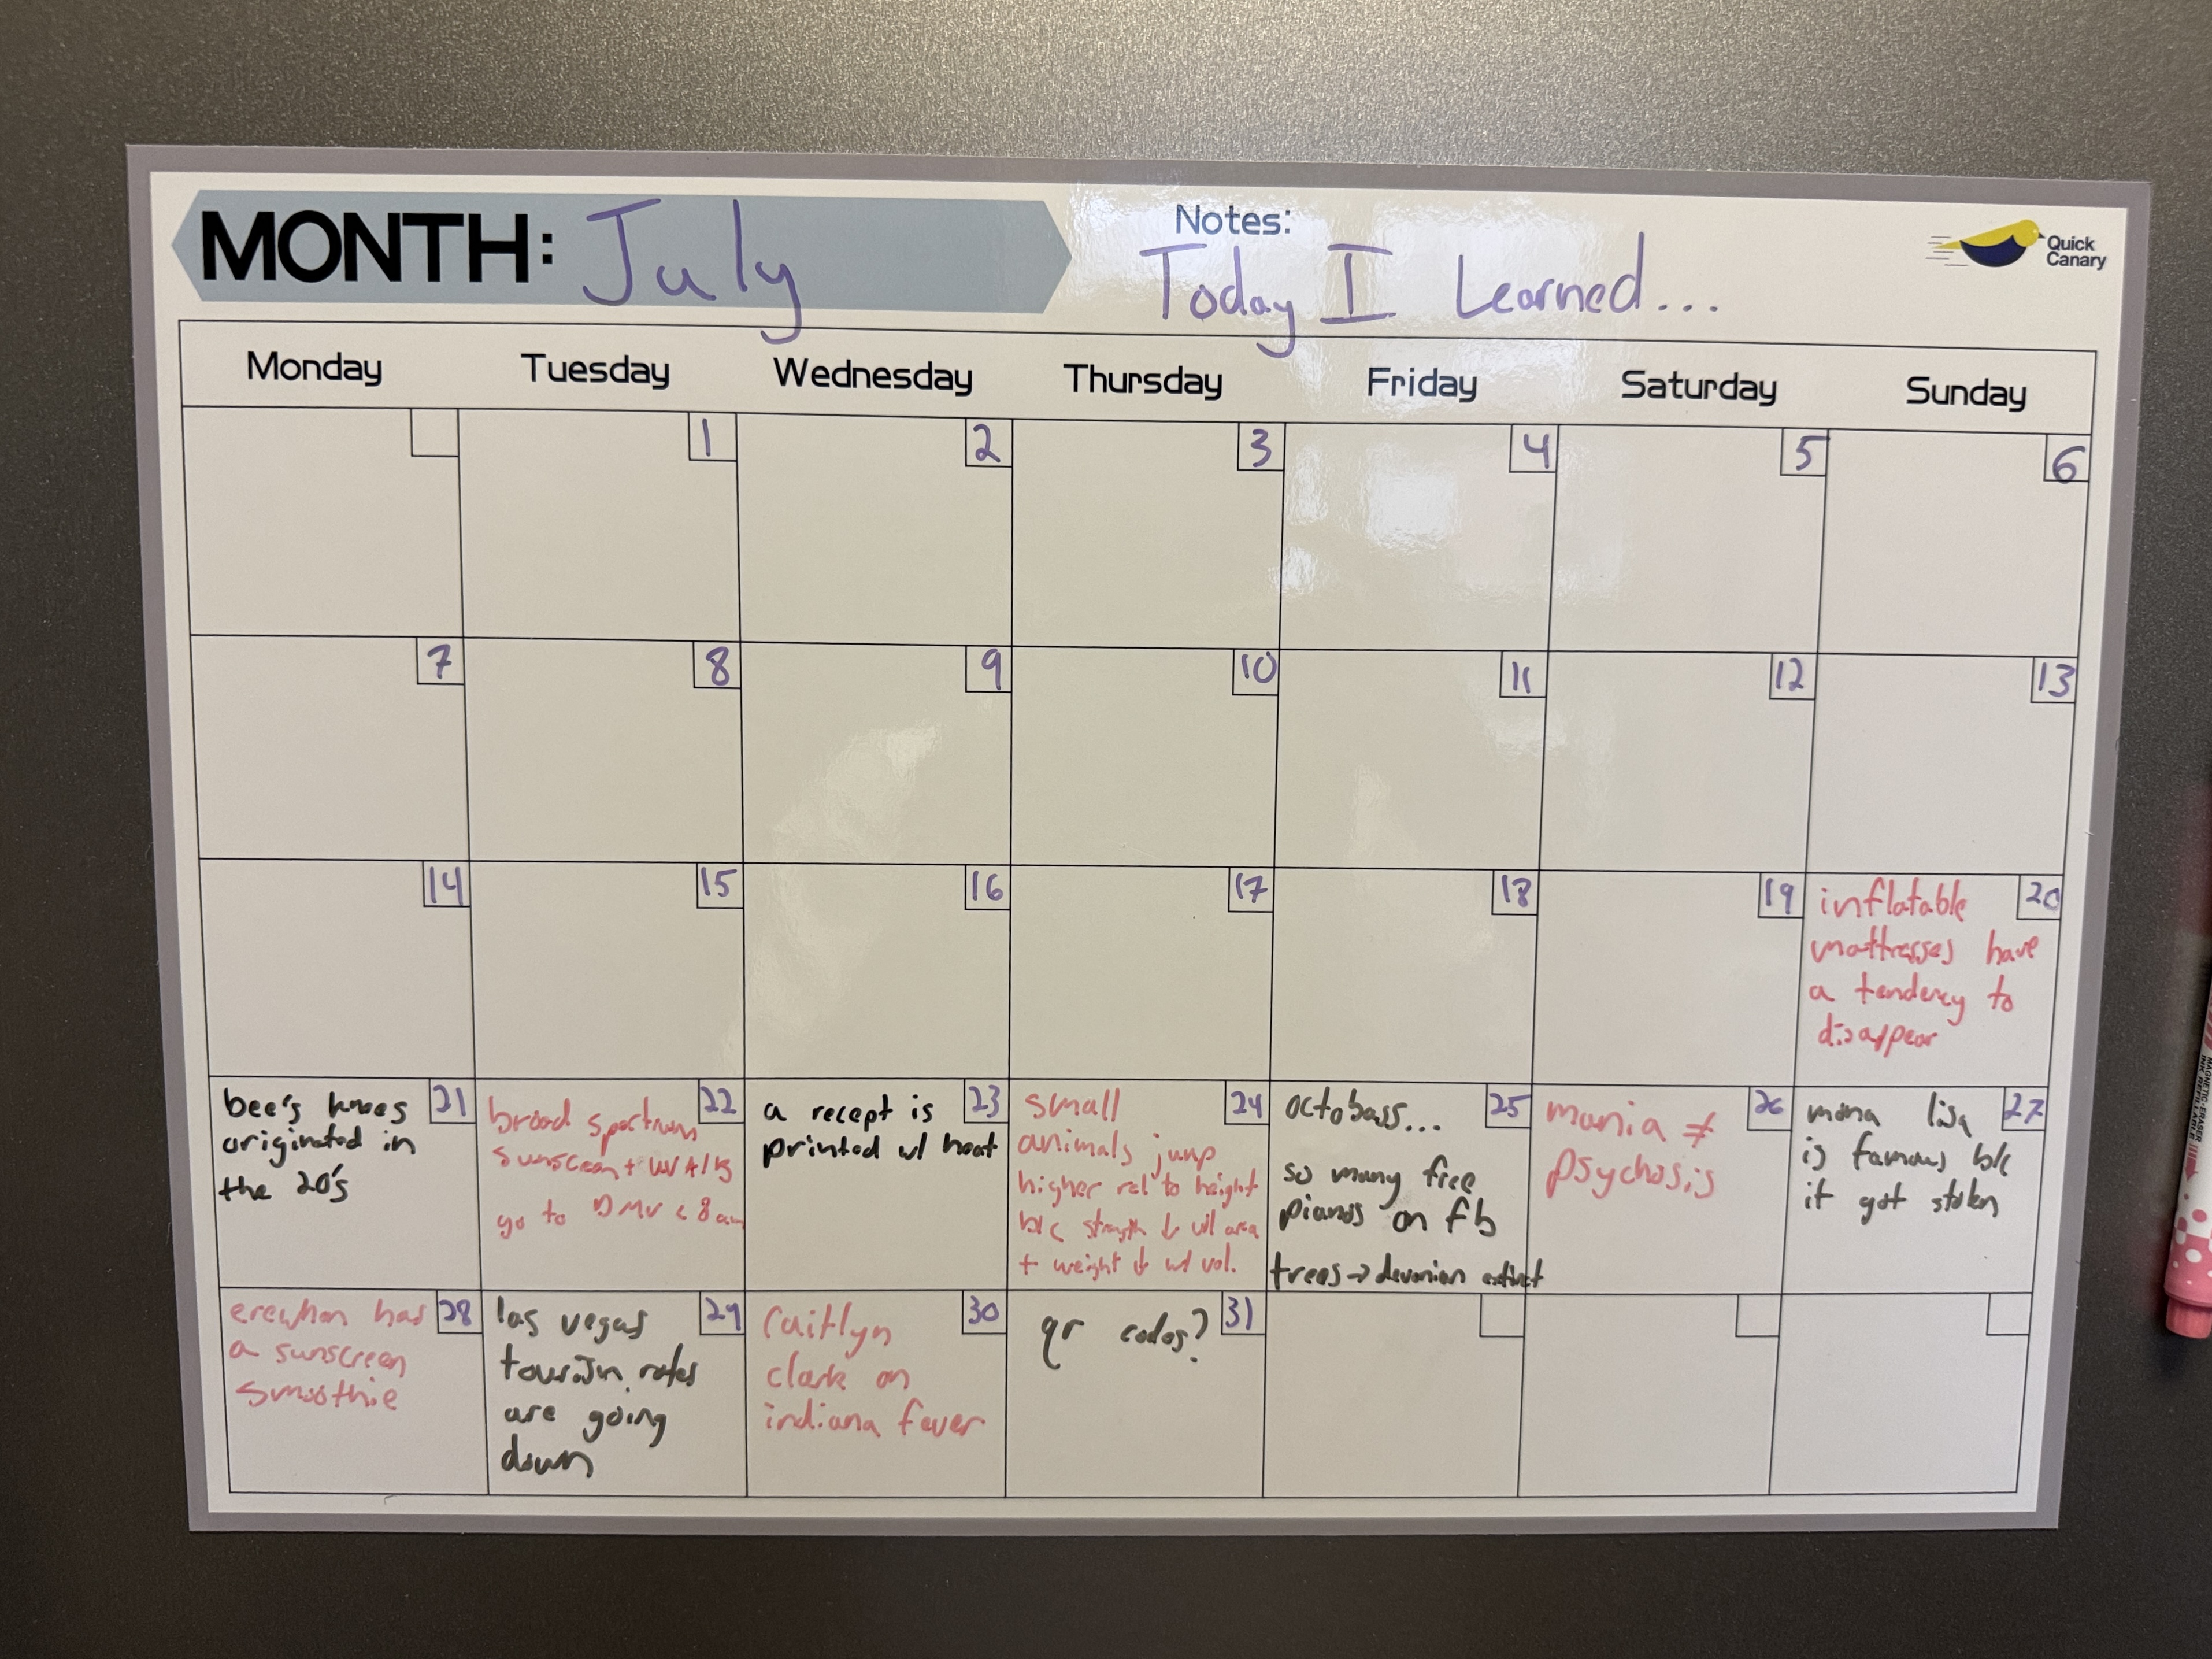 MONTH: July
Notes:
Today I Learned...
Quick
Canary
Monday Tuesday Wednesday Thursday Friday Saturday Sunday
1 2 3 4 5 6
7 8 9 10 11 12 13
14 15 16 17 18 19 20
inflatable
mattresses have
a tendency to
disappear
21
bee's knees
originated in
the 20's
22
broad spectrum
sunscreen + UV A/B
go to DMV < 8 am
23
a recept is
printed w/ heat
24
small
animals jump
higher rel to height
b/c strength ↓ w/ area
+ weight ↓ w/ vol.
25
octobass...
so many free
pianos on fb
trees → devonian extinct
26
mania ≠
psychosis
27
mona lisa
is famous b/c
it got stolen
28
erewhon has
a sunscreen
smoothie
29
las vegas
tourism rates
are going
down
30
Caitlyn
clark on
indiana fever
31
qr codes?